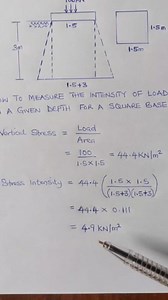 100KN
1.5
3m
1.5m
1.5m
1.5+3
TO MEASURE THE INTENSITY OF LOAD
A GIVEN DEPTH FOR A SQUARE BASE
Vertical Stress = Load
Area
= 100
1.5 x 1.5
= 44.4 KN/m²
Stress Intensity = 44.4 ( 1.5 x 1.5
(1.5+3)(1.5+3) )
= 44.4 x 0.111
= 4.9 KN/m²